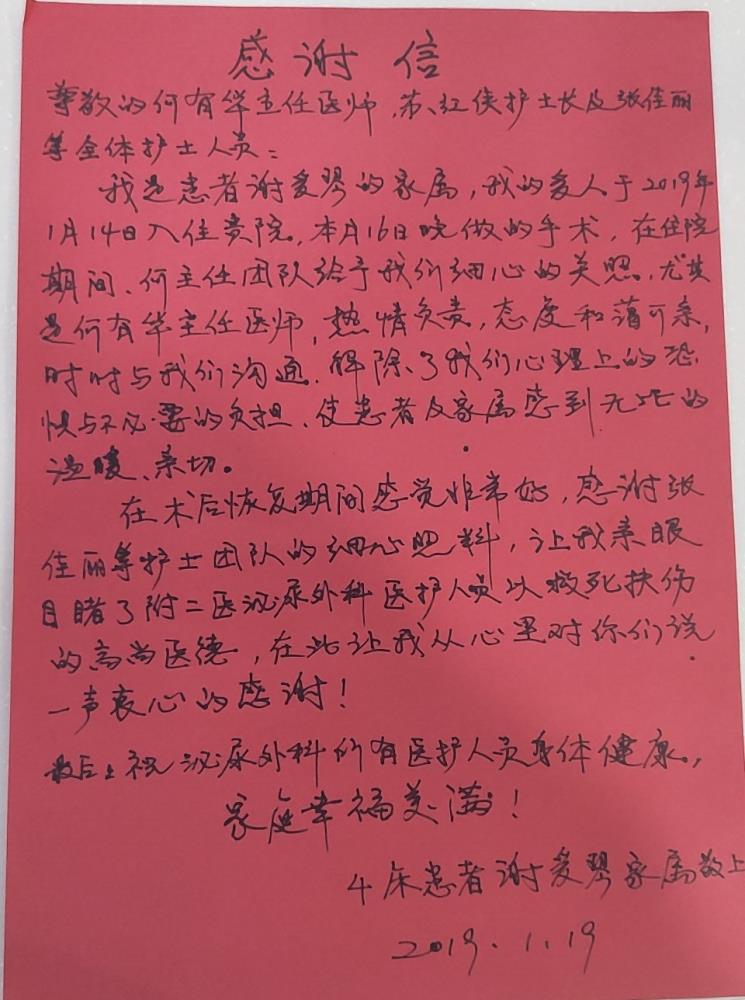 感谢信
尊敬的何有华主任医师，苏红侠护士长及张佳丽
等全体护士人员：
我是患者谢爱琴的家属，我的爱人于2019年
1月14日入住贵院。本月16日晚做的手术，在住院
期间、何主任团队给予我们细心的关照。尤其
是何有华主任医师，热情负责，态度和蔼可亲，
时时与我们沟通.解除了我们心理上的恐
惧与不必要的负担、使患者及家属感到无比的
温暖、亲切。
在术后恢复期间感觉非常好，感谢张
佳丽等护士团队的细心照料，让我亲眼
目睹了附二医泌尿外科医护人员以救死扶伤
的高尚医德，在此让我从心里对你们说
一声衷心的感谢！
最后祝泌尿外科所有医护人员身体健康。，
家庭幸福美满！
4床患者谢爱琴家属敬上
2019.1.19